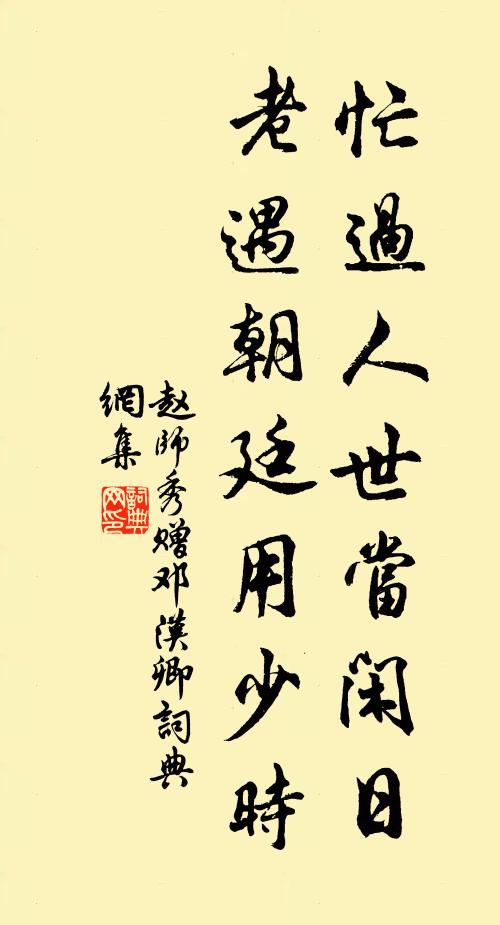 忙過人世當闲日
老遇朝廷用少時
赵師秀赠邓漢卿詞典
網集
詞典
网印